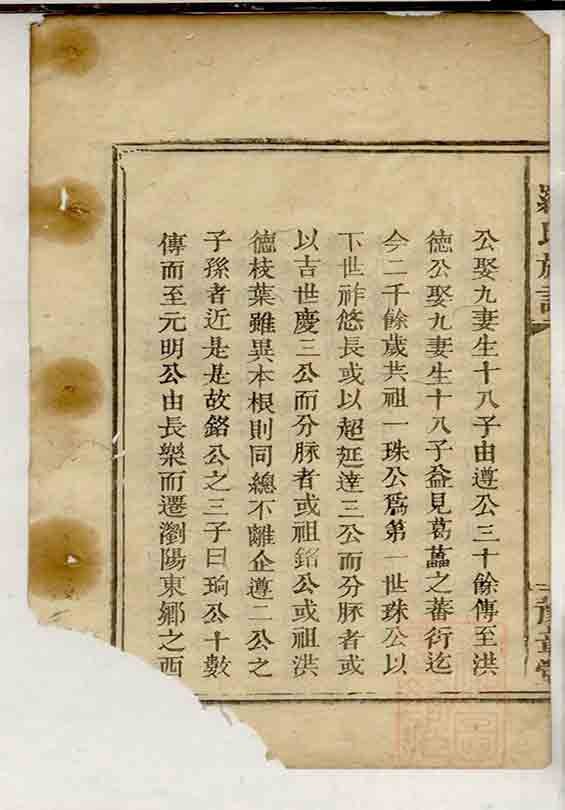 公娶九妻生十八子由遵公三十餘傳至洪
德公娶九妻生十八子益見葛藟之蕃衍迄
今二千餘歲共祖一珠公爲第一世珠公以
下世祚悠長或以超延達三公而分脉者或
以吉世慶三公而分脉者或祖銘公或祖洪
德枝葉雖異本根則同總不離企遵二公之
子孫者近是是故銘公之三子曰珦公十數
傳而至元明公由長樂而遷瀏陽東鄉之西
羅氏族譜
豫章堂